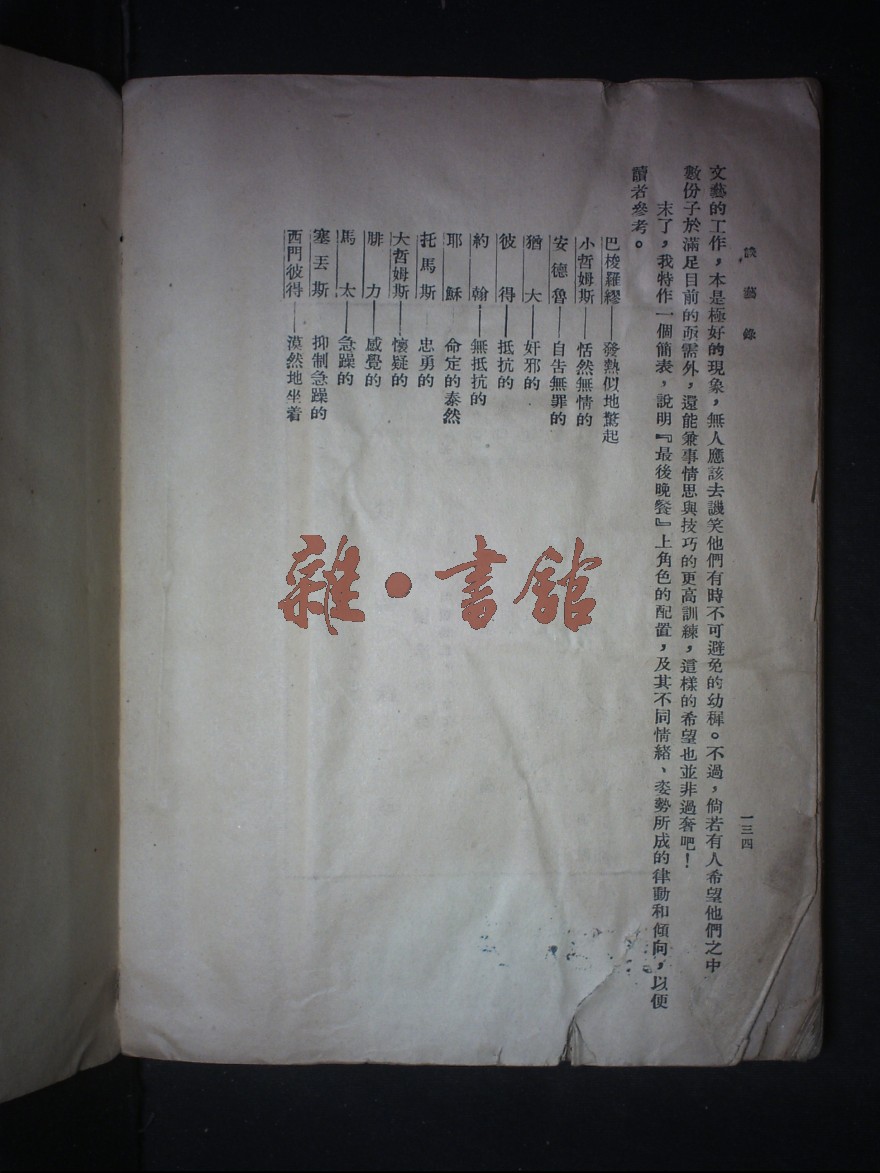 談藝錄
一三四
文藝的工作，本是極好的現象，無人應該去譏笑他們有時不可避免的幼稺。不過，倘若有人希望他們之中
數份子於滿足目前的亟需外，還能兼事情思與技巧的更高訓練，這樣的希望也並非過奢吧！
末了，我特作一個簡表，說明『最後晚餐』上角色的配置，及其不同情緒、姿勢所成的律動和傾向，以便
讀者參考。
巴梭羅繆——發熱似地驚起
小哲姆斯——恬然無情的
安德魯——自告無罪的
猶大——奸邪的
彼得——抵抗的
約翰——無抵抗的
耶穌——命定的泰然
托馬斯——忠勇的
大哲姆斯——懷疑的
腓力——感覺的
馬太——急躁的
塞丟斯——抑制急躁的
西門彼得——漠然地坐着
雜·書館